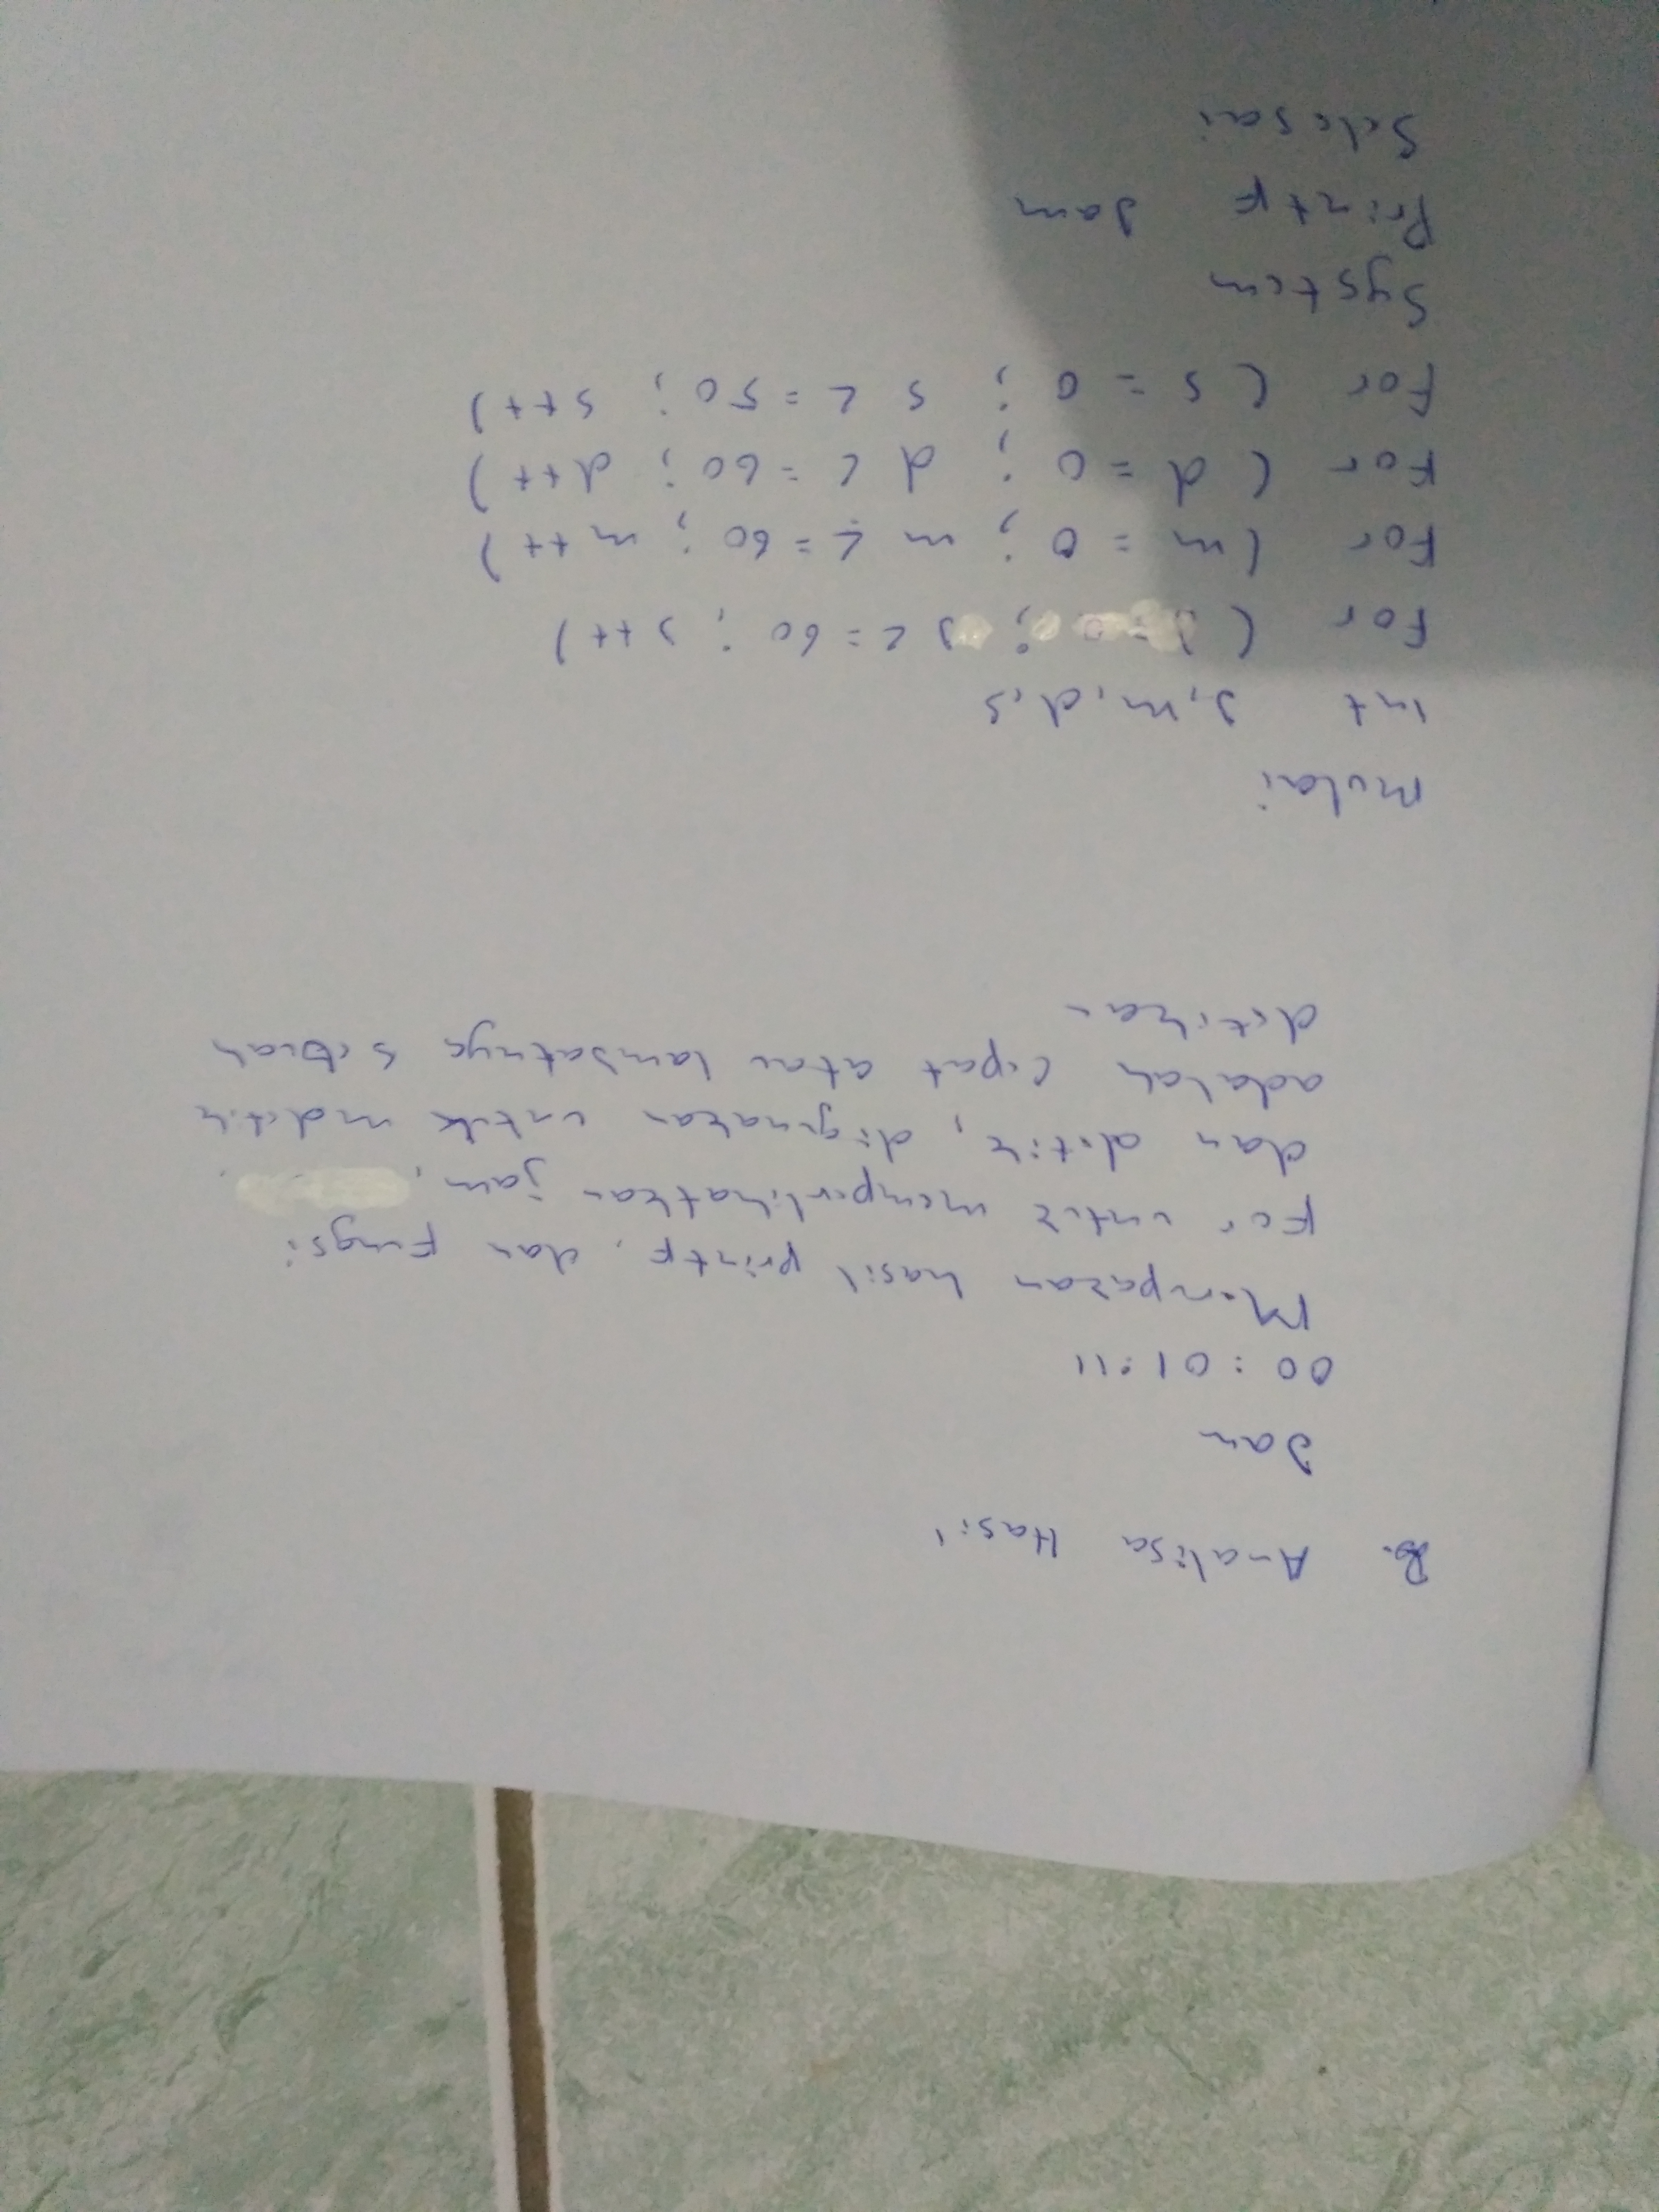 B. Analisa Hasil
Jam
00 : 01 : 11
Merupakan hasil printf, dan Fungsi
For untuk memperlihatkan jam,
dan detik, digunakan untuk mdetik
adalah cepat atau lambatnya sebuah
detikan
Mulai
Int J, m, d, s
For ( J = 0 ; J <= 60 ; J ++)
For ( m = 0 ; m <= 60 ; m ++)
For ( d = 0 ; d <= 60 ; d ++)
For ( s = 0 ; s <= 50 ; s ++)
System
Printf Jam
Selesai